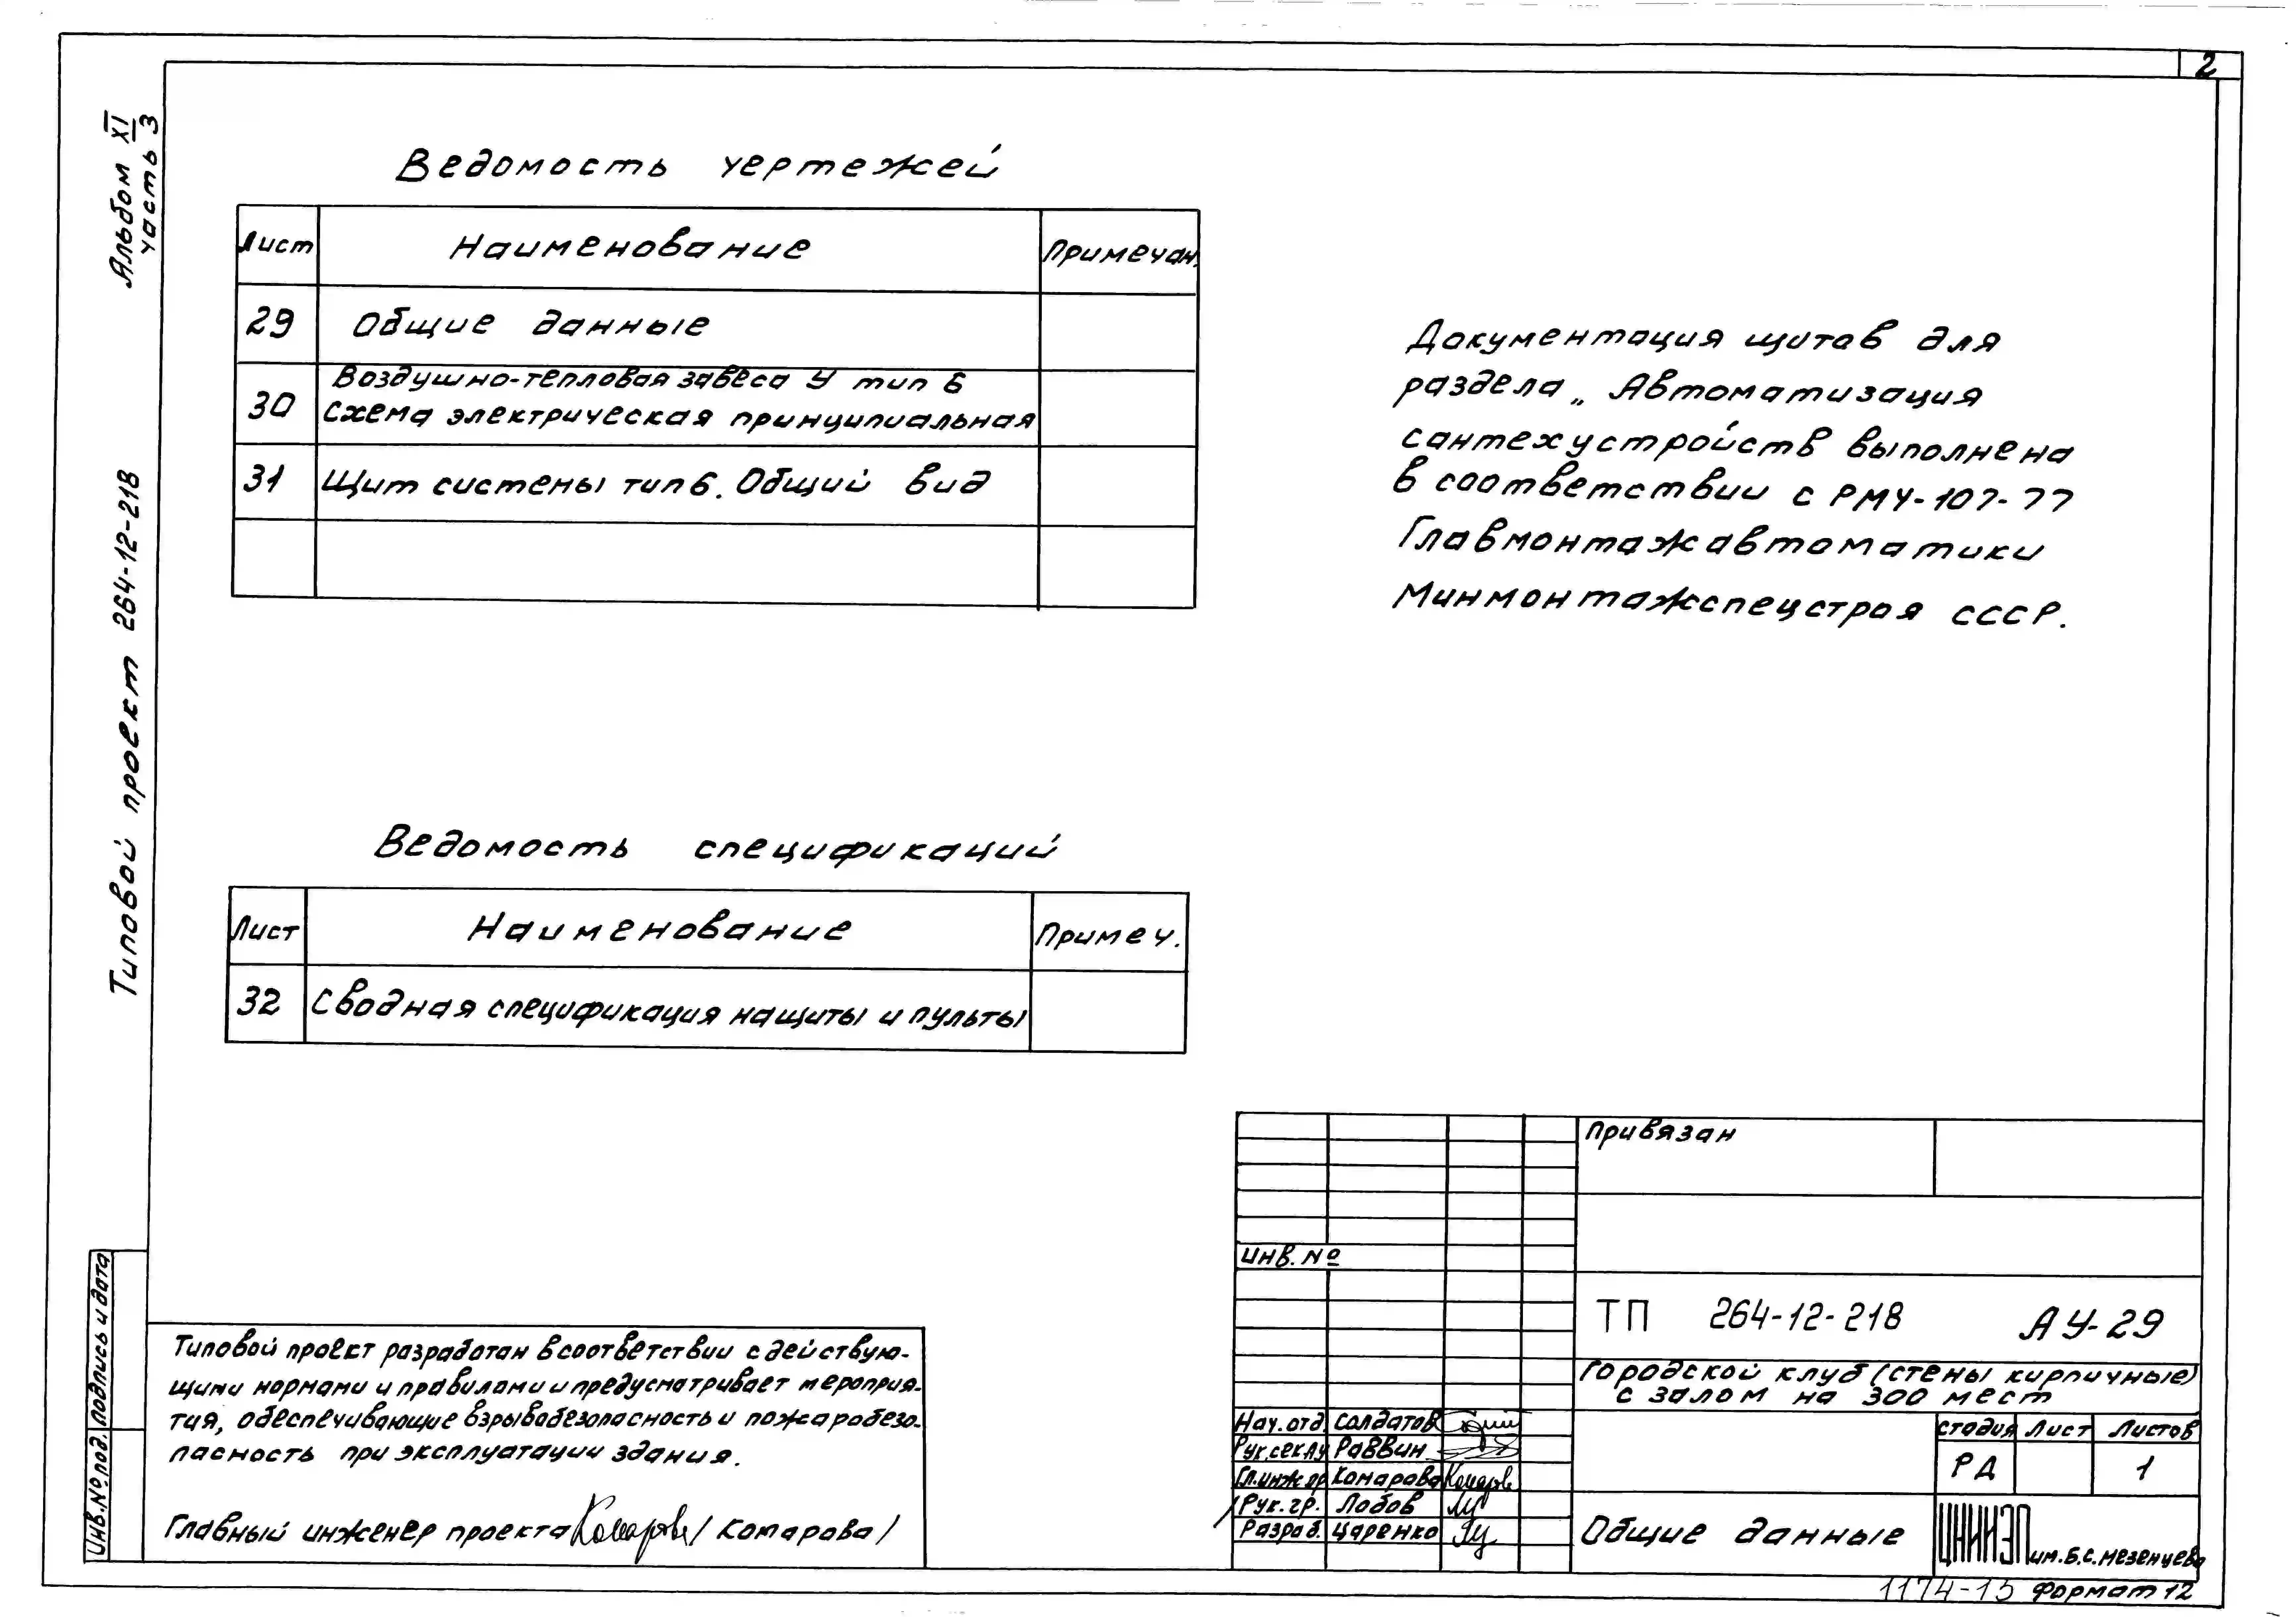 2
Альбом XI
часть 3
Типовой проект 264-12-218
Ведомость чертежей
Лист Наименование Примечан.
29 Общие данные
30 Воздушно-тепловая завеса У тип 6
схема электрическая принципиальная
31 Щит системы тип 6. Общий вид
Документация щитов для
раздела „Автоматизация
сантехустройств выполнена
в соответствии с РМ4-107-77
Главмонтажавтоматики
Минмонтажспецстроя СССР.
Ведомость спецификаций
Лист Наименование Примеч.
32 Сводная спецификация на щиты и пульты
Привязан
Инв. №
ТП 264-12-218 АУ-29
Городской клуб (стены кирпичные)
с залом на 300 мест
Нач. отд. Солдатов
Рук. сек. АУ Раввин
Гл. инж. пр Комарова
Рук. гр. Лобов
Разраб. Царенко
стадия Лист Листов
РД 1
Общие данные
ЦНИИЭП им. Б.С. Мезенцева
1174-15 Формат 12
Типовой проект разработан в соответствии с действую-
щими нормами и правилами и предусматривает мероприя-
тия, обеспечивающие взрывобезопасность и пожаробезо-
пасность при эксплуатации здания.
Главный инженер проекта /Комарова/
Инв. № под. Подпись и дата